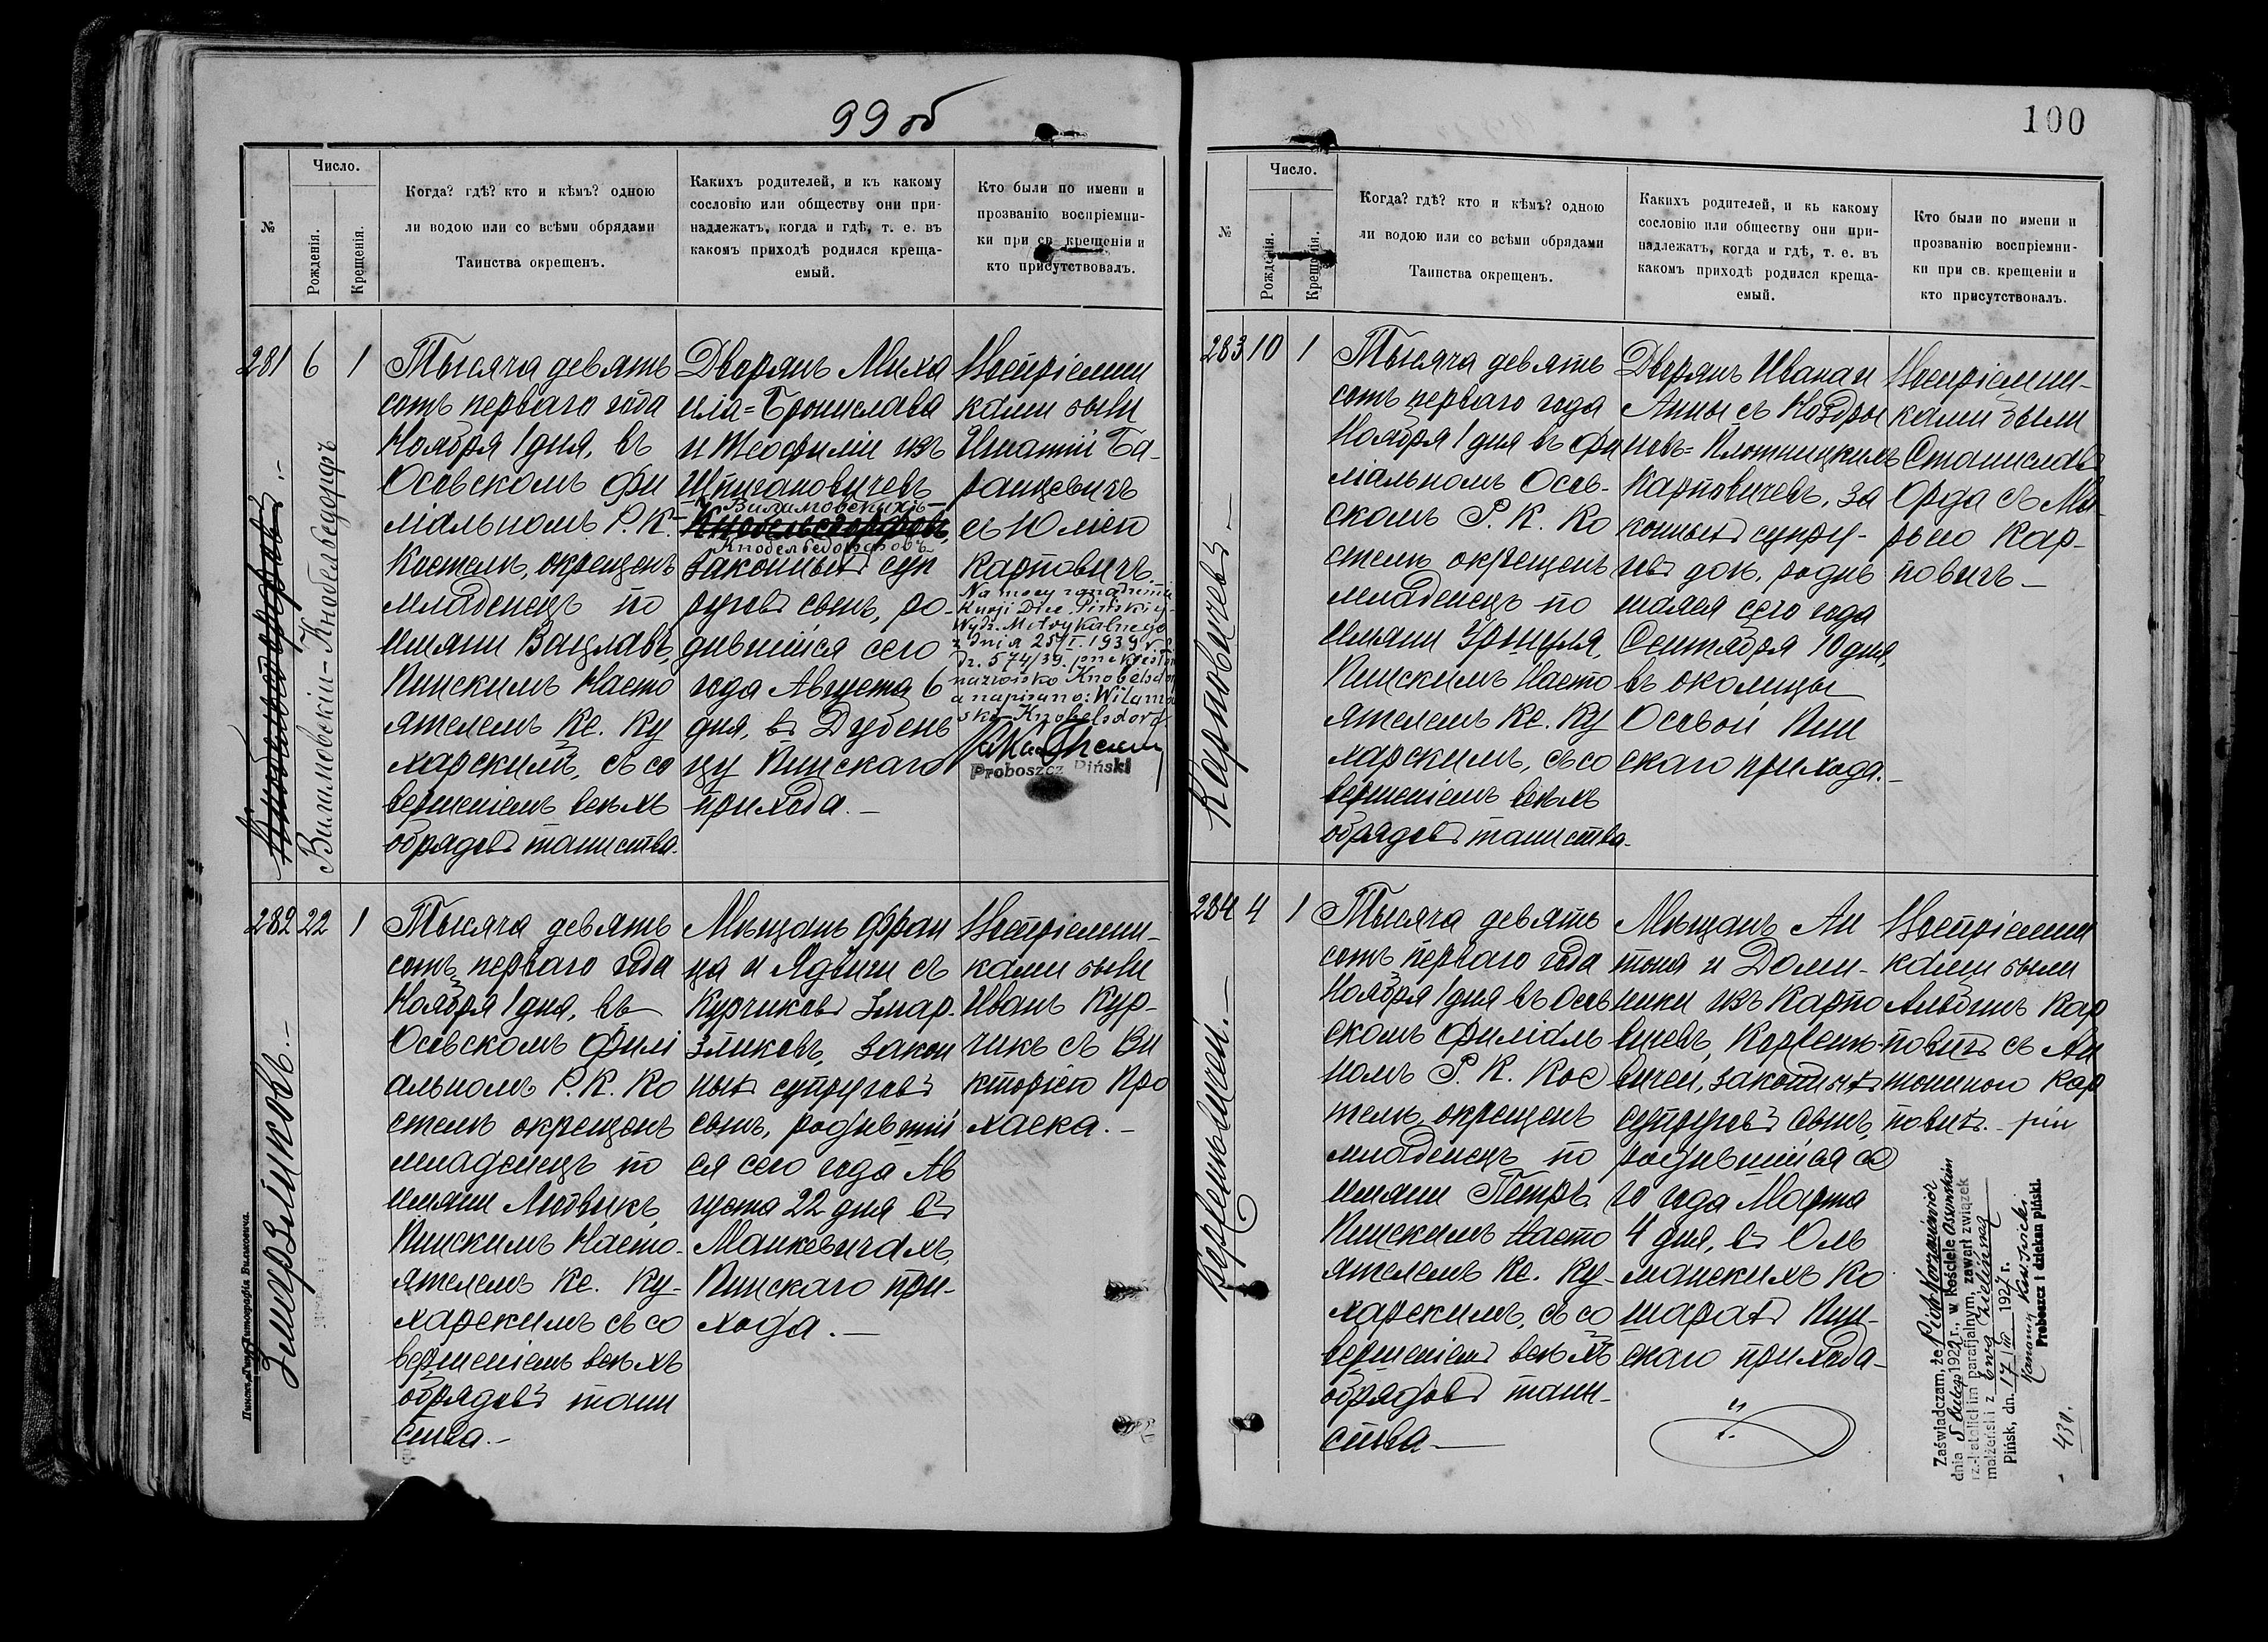 99 об
№
Число.
Рожденія.
Крещенія.
Когда? гдѣ? кто и кѣмъ? одною
ли водою или со всѣми обрядами
Таинства окрещенъ.
Какихъ родителей, и къ какому
сословію или обществу они при-
надлежатъ, когда и гдѣ, т. е. въ
какомъ приходѣ родился креща-
емый.
Кто были по имени и
прозванію воспріемни-
ки при св. крещеніи и
кто присутствовалъ.
281
6
1
Вилимовскій-Кнобельсдорфъ
Тысяча девять
сотъ перваго года
Ноября 1 дня, въ
Осовскомъ фи
ліальномъ Р. К.
Костелѣ, окрещенъ
младенецъ по
имяни Вацлавъ,
Пинскимъ Насто
ятелемъ Кс. Ку
харскимъ, съ со
вершеніемъ всѣхъ
обрядовъ таинства.
Дворянъ Миха
ила=Бронислава
и Теофиліи изъ
Шпигановичевъ
Вилимовскихъ-
Кнобельсдорфовъ,
Кнобельсдорфовъ
законныхъ суп
руговъ сынъ, ро-
дившійся сего
года Августа 6
дня, въ Дубен
цу Пинскаго
прихода. –
Воспріемни
ками были
Игнатій Ба-
ранцевичъ
съ Юліею
Карповичъ
Na mocy
Kurji Diec. Pińskiej
Wydz. Metrykalnego
z dnia 25/I. 1939 r.
Dz. 574/39
nazwisko Knobelsdor
a napisano: Wilamo
ski-Knobelsdorf
Proboszcz Piński
282
22
1
Змарзликовъ. –
Тысяча девять
сотъ перваго года
Ноября 1 дня, въ
Осовскомъ Филі
альномъ Р. К. Ко
стелѣ окрещенъ
младенецъ по
имяни Людвикъ,
Пинскимъ Насто-
ятелемъ Кс. Ку-
харскимъ съ со
вершеніемъ всѣхъ
обрядовъ таин
ства. –
Мѣщанъ Фран
ца и Ядвиги съ
Курчиковъ Змар-
зликовъ, закон
ныхъ супруговъ
сынъ, родивший
ся сего года Ав
густа 22 дня въ
Манкевичахъ,
Пинскаго при-
хода. –
Воспріемни-
ками были
Иванъ Кур-
чикъ съ Ви
кторіею Про
хаска. –
Пинскъ, Типо-Литографія Вилковича.
100
№
Число.
Рожденія.
Крещенія.
Когда? гдѣ? кто и кѣмъ? одною
ли водою или со всѣми обрядами
Таинства окрещенъ.
Какихъ родителей, и къ какому
сословію или обществу они при-
надлежатъ, когда и гдѣ, т. е. въ
какомъ приходѣ родился креща-
емый.
Кто были по имени и
прозванію воспріемни-
ки при св. крещеніи и
кто присутствовалъ.
283
10
1
Карповичевъ –
Тысяча девять
сотъ перваго года
Ноября 1 дня въ Фи
ліальномъ Осов-
скомъ Р. К. Ко
стелѣ окрещенъ
младенецъ по
имяни Уршуля,
Пинскимъ Насто
ятелемъ Кс. Ку
харскимъ, съ со
вершеніемъ всѣхъ
обрядовъ таинства.
Дворянъ Ивана и
Анны съ Ноздри
новъ=Плотницкихъ
Карповичевъ, за
конныхъ супру-
говъ дочь, родив
шаяся сего года
Сентября 10 дня,
въ околицы
Осовой Пин
скаго прихода. –
Воспріемни-
ками были
Станиславъ
Орда съ Ма-
рьею Кар-
повичъ –
284
4
1
Тысяча девять
сотъ перваго года
Ноября 1 дня въ Осов
скомъ Филіаль
номъ Р. К. Кос
телѣ окрещенъ
младенецъ по
имяни Петръ
Пинскимъ Насто
ятелемъ Кс. Ку-
харскимъ, съ со
вершеніемъ всѣхъ
обрядовъ таин-
ства –
Мѣщанъ Ан
тона и Доми-
ники изъ Карпо
вичевъ,
законныхъ
супруговъ сынъ,
родившийся се
го года Марта
4 дня, въ Оль
манскихъ Ко
шарахъ Пин-
скаго прихода –
Воспріемни
ками были
Альбинъ Кар
повичъ съ Ан
тониною Кар
повичъ. –
Zaświadczam, że Piotr
dnia 5 1927 r., w kościele
rz.-katolickim parafjalnym, zawarł związek
małżeński z Ewą
Pińsk, dn. 17/III 1927 r.
Proboszcz i dziekan piński.
430.